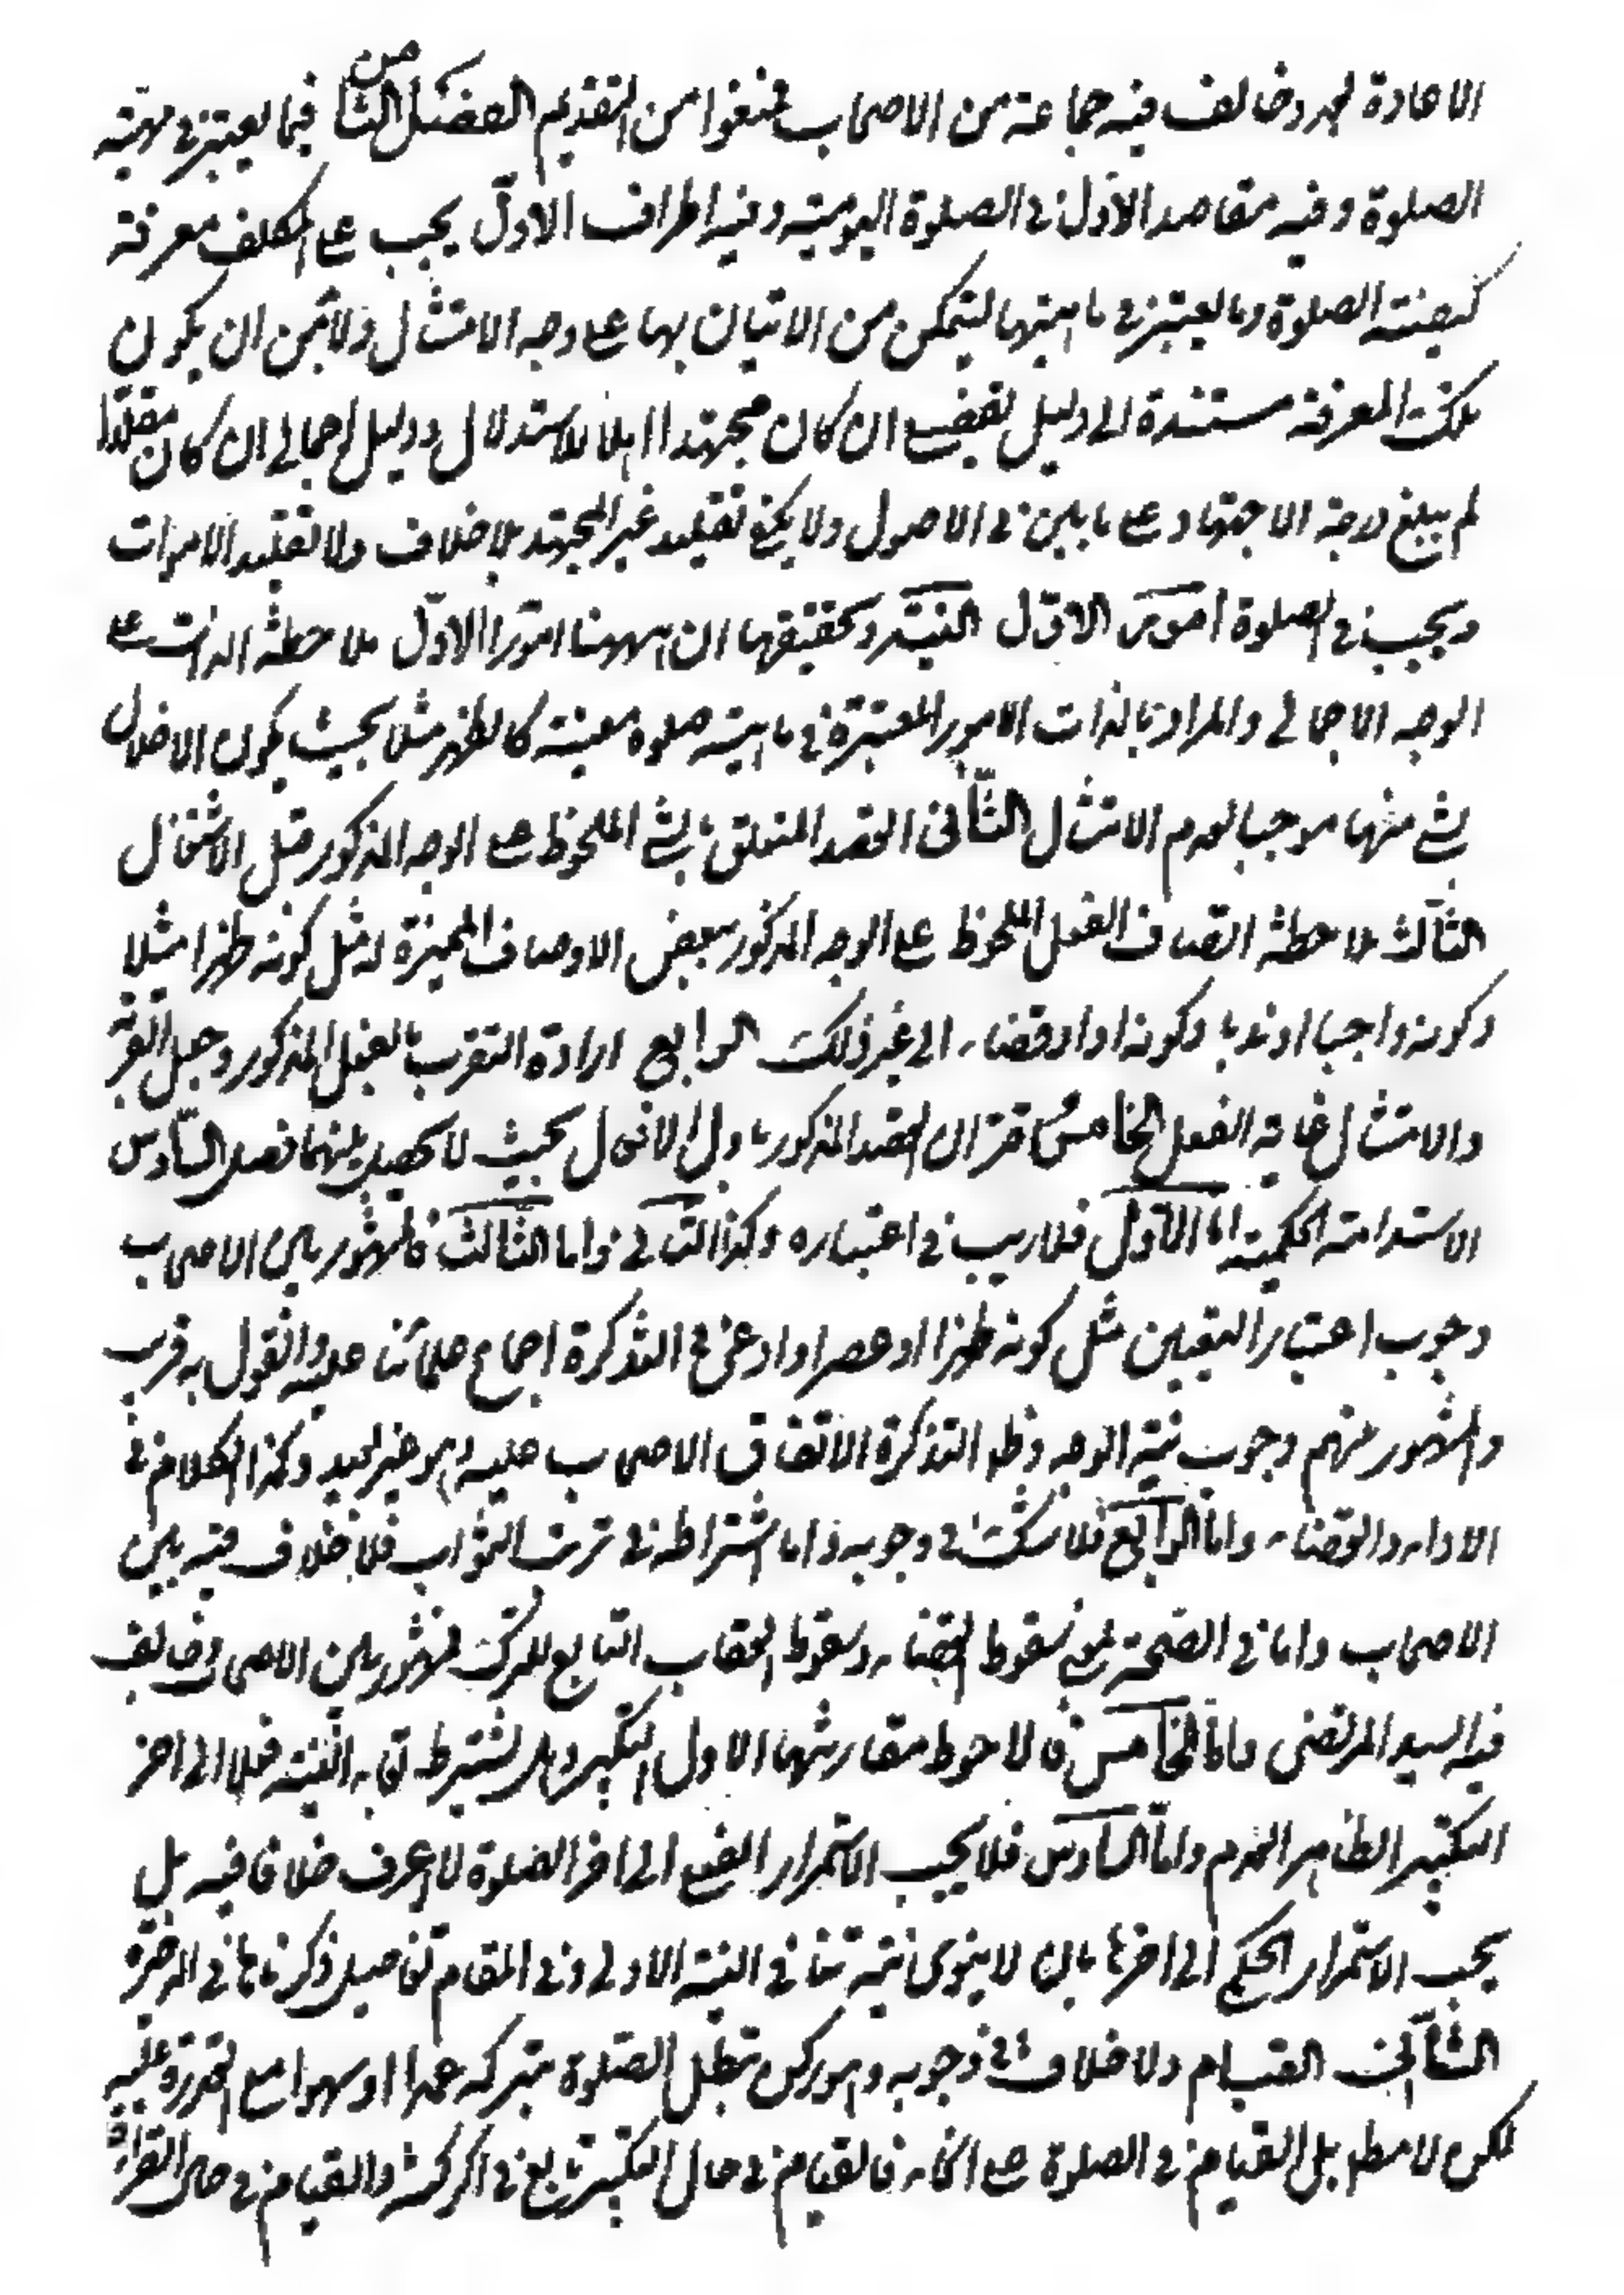 الاعادة لهم وخالف فيه جماعة من الاصحاب فمنعوا من التقديم الفصل الثامن فيما يعتبر في مهية
الصلوة وفيه مقاصد الأول في الصلوة اليومية وفيه اطراف الاول يجب على المكلف معرفة
كيفية الصلوة وما يعتبر في ماهيتها ليتمكن من الاتيان بها على وجه الامتثال ولا بد من ان يكون
تلك المعرفة مستندة الى دليل تفصيلي ان كان مجتهدا اهلا للاستدلال ودليل اجمالي ان كان مقلدا
لم يبلغ درجة الاجتهاد على ما بين في الاصول ولا يكفي تقليد غير المجتهد بلا خلاف ولا تقليد الاموات
ويجب في الصلوة امور الاول النية وتحقيقها ان ههنا امورا الاول ملاحظة الذات على
الوجه الاجمالي والمراد بالذات الامور المعتبرة في ماهية صلوة معينة كالظهر مثلا بحيث يكون الاخلال
بشئ منها موجبا لعدم الامتثال الثاني القصد المتعلق بالشئ الملحوظ على الوجه المذكور قبل الاشتغال
الثالث ملاحظة اتصاف الفعل الملحوظ على الوجه المذكور ببعض الاوصاف المميزة له مثل كونه ظهرا مثلا
وكونه واجبا او ندبا وكونه اداء وقضاء الى غير ذلك الرابع ارادة التقرب بالفعل المذكور وجعل القربة
والامتثال غاية الفعل الخامس اقتران القصد المذكور باول الافعال بحيث لا يحصل بينهما فصل السادس
الاستدامة الحكمية اما الاول فلا ريب في اعتباره وكذا الثاني واما الثالث فالمشهور بين الاصحاب
وجوب اعتبار التعيين مثل كونه ظهرا او عصرا وادعى في التذكرة اجماع علمائنا عليه والقول به قريب
والمشهور منهم وجوب نية الوجه وظاهر التذكرة الاتفاق الاصحاب عليه وهو غير بعيد وكذا الكلام في
الاداء والقضاء واما الرابع فلا شك في وجوبه واما اشتراطه في ترتب الثواب فلا خلاف فيه بين
الاصحاب واما في الصحة بمعنى سقوط القضاء وسقوط العقاب التابع للترك فمشهور بين الاصحاب وخالف
فيه السيد المرتضى واما الخامس فالاحوط مقارنتها لاول التكبير وهل يشترط بقاء النية فعلا الى اخر
التكبير الظاهر العدم واما السادس فلا يجب الاستمرار الفعلي الى اخر الصلوة لا اعرف خلافا فيه بل
يجب الاستمرار الحكمي الى اخرها بان لا ينوي نية تنافي النية الاولى وفي المقام تفاصيل ذكرناها في الذخيرة
الثاني القيام ولا خلاف في وجوبه وهو ركن تبطل الصلوة بتركه عمدا او سهوا مع القدرة عليه
لكن لا مطلقا بل القيام في الصلوة على انحاء فالقيام في حال التكبير تابع في الركنية والقيام في حال القراءة